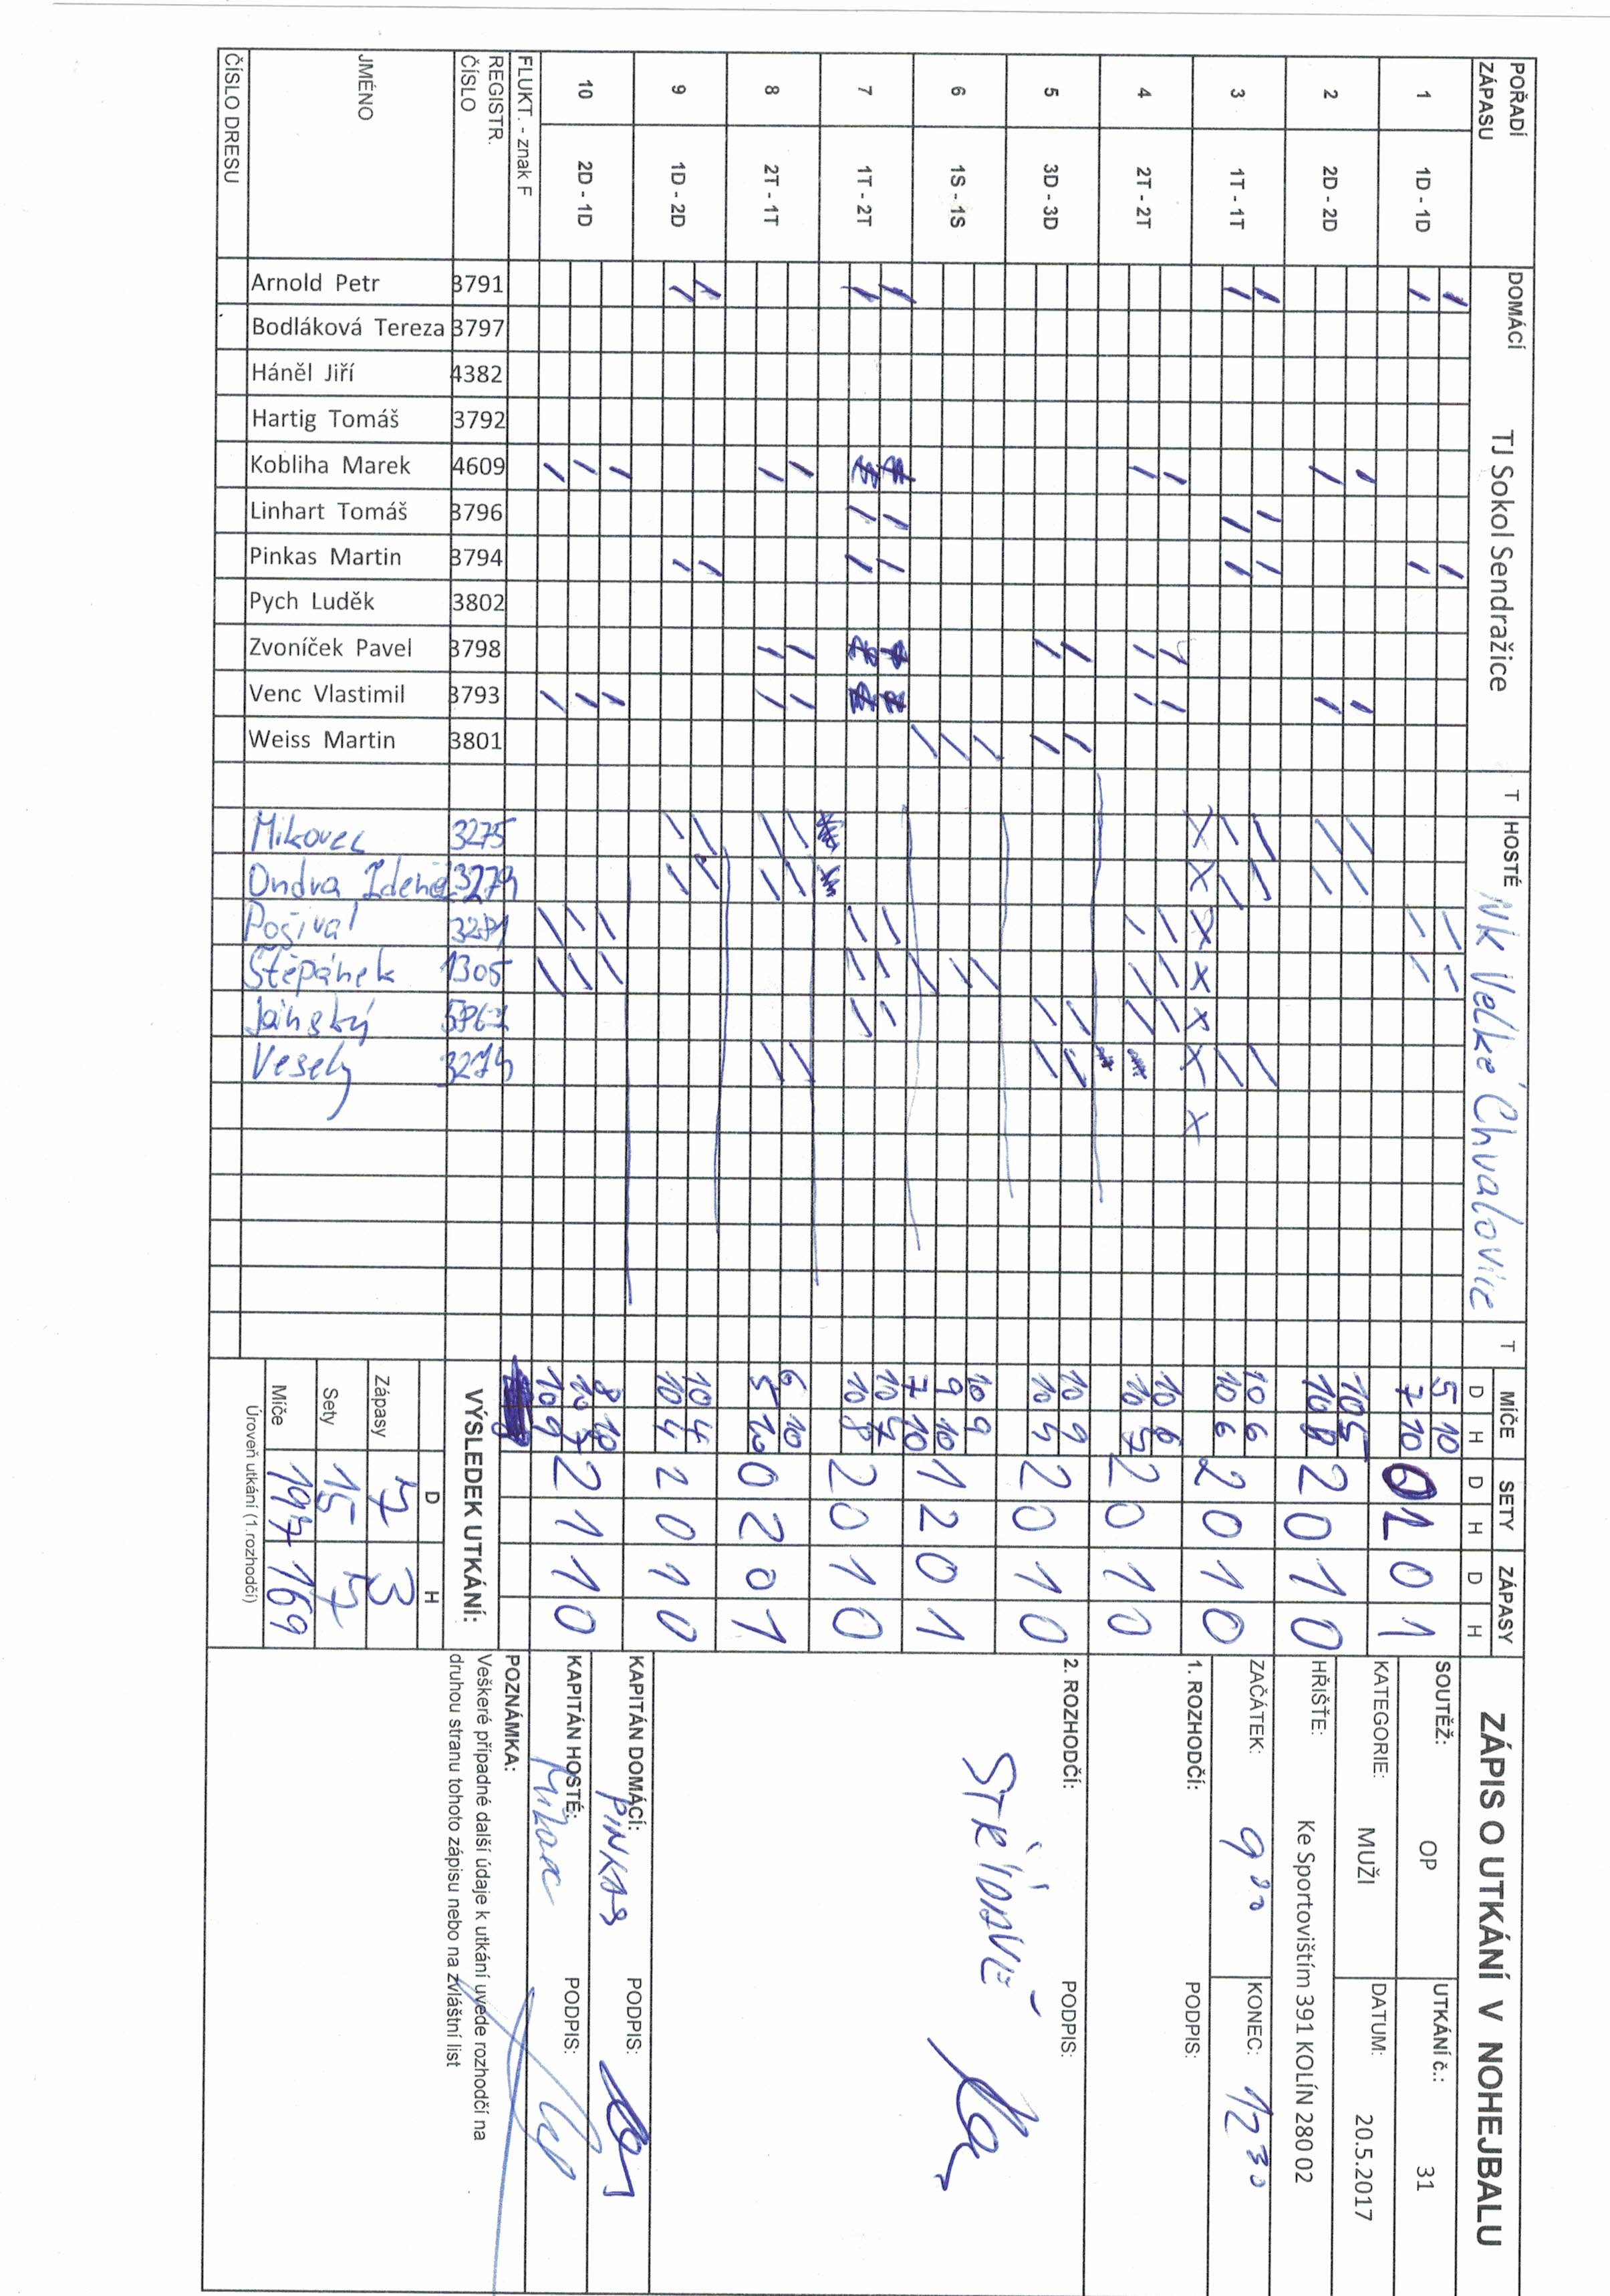 ZÁPIS O UTKÁNÍ V NOHEJBALU
SOUTĚŽ: OP UTKÁNÍ č.: 31
KATEGORIE: MUŽI DATUM: 20.5.2017
HŘIŠTE: Ke Sportovištím 391 KOLÍN 280 02
ZAČÁTEK: 9 00 KONEC: 12 30
1. ROZHODČÍ: PODPIS:
2. ROZHODČÍ: PODPIS:
STŘÍDAVĚ
KAPITÁN DOMÁCÍ: PODPIS:
PINKAS
KAPITÁN HOSTÉ: PODPIS:
POZNÁMKA:
Veškeré případné další údaje k utkání uvede rozhodčí na
druhou stranu tohoto zápisu nebo na zvláštní list
POŘADÍ ZÁPASU DOMÁCÍ TJ Sokol Sendražice T HOSTÉ NK Velké Chvalovice T MÍČE SETY ZÁPASY
D H D H D H
1 1D - 1D 5 10 7 10 0 2 0 1
2 2D - 2D 10 5 10 8 2 0 1 0
3 1T - 1T 10 6 10 6 2 0 1 0
4 2T - 2T 10 6 10 7 2 0 1 0
5 3D - 3D 10 9 10 2 0 1 0
6 1S - 1S 10 9 9 10 7 10 1 2 0 1
7 1T - 2T 10 7 10 8 2 0 1 0
8 2T - 1T 6 10 5 10 0 2 0 1
9 1D - 2D 10 4 10 4 2 0 1 0
10 2D - 1D 8 10 10 7 10 9 2 1 1 0
FLUKT. - znak F
REGISTR. ČÍSLO
JMÉNO
ČÍSLO DRESU
Arnold Petr 3791
Bodláková Tereza 3797
Háněl Jiří 4382
Hartig Tomáš 3792
Kobliha Marek 4609
Linhart Tomáš 3796
Pinkas Martin 3794
Pych Luděk 3802
Zvoníček Pavel 3798
Venc Vlastimil 3793
Weiss Martin 3801
Mikovec 3275
Ondra Zdeněk
Pošíval
Štěpánek 1305
Jánský
Veselý 3274
VÝSLEDEK UTKÁNÍ:
D H
Zápasy 7 3
Sety 15 7
Míče 197 169
Úroveň utkání (1.rozhodčí)